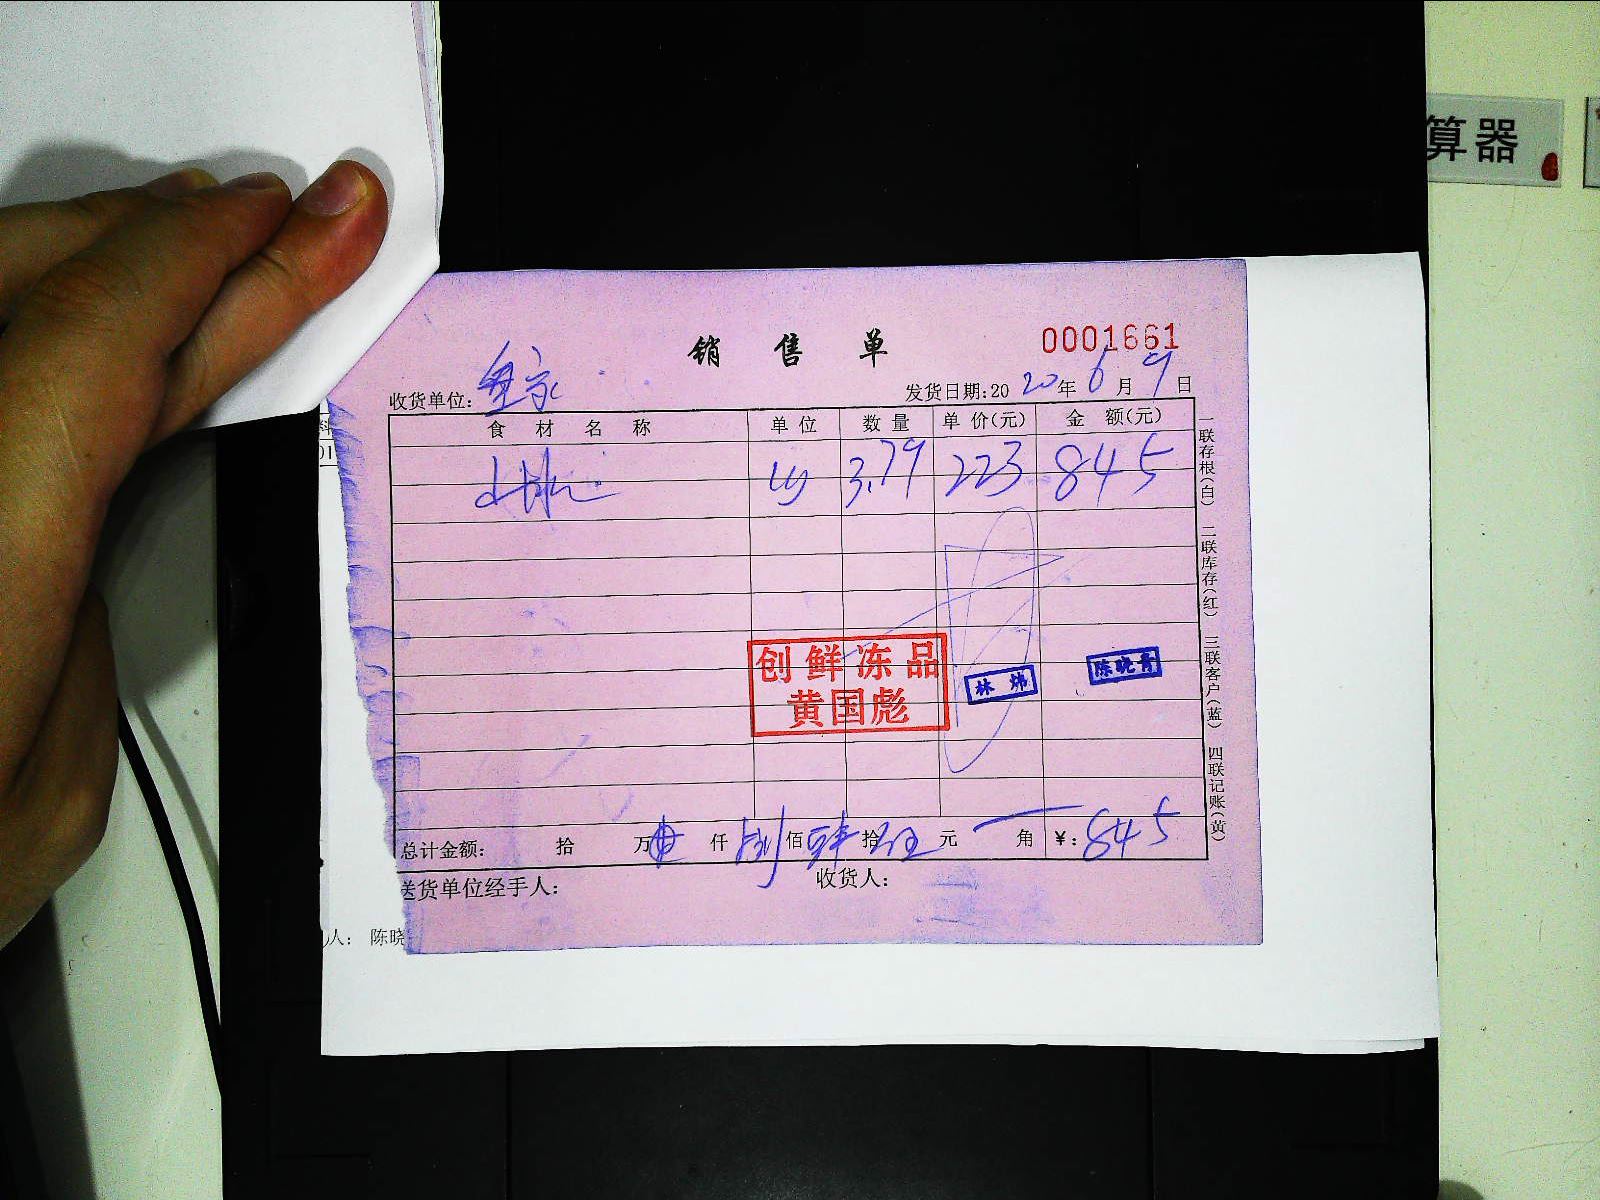 算器
销售单
0001661
收货单位：
发货日期:2020年6月9日
食材名称 单位 数量 单价(元) 金额(元)
3.79 223 845
创鲜冻品
黄国彪
林炜
陈晓青
总计金额： 拾 万 仟 捌佰 肆拾 伍元 角 ¥：845
送货单位经手人： 收货人：
一联存根(白) 二联库存(红) 三联客户(蓝) 四联记账(黄)
人： 陈晓